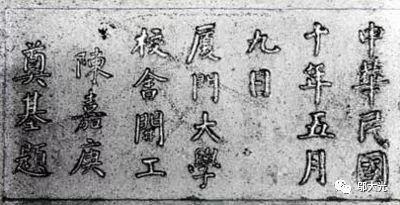 中華民國
十年五月
九日
厦門大學
校舍開工
陳嘉庚
奠基題
鄔大光